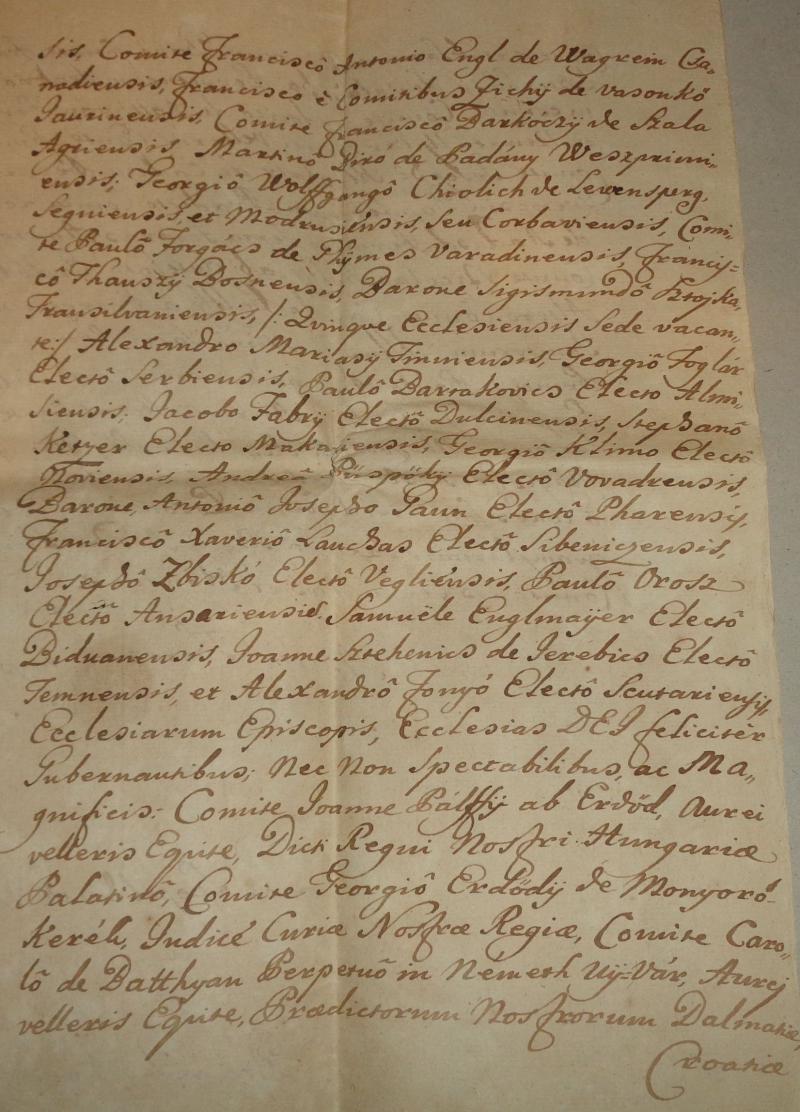 sis, Comite Franciscô Antonio Engl de Wagrein Csa„
nadiensis, Francisco è Comitibus Zichÿ de Vasonkő
Iaurinensis, Comite Franciscô Barkóczÿ de Szala
Agriensis Martinô Biró de Padány Weszprimi„
ensis; Georgiô Wolffgangô Chiolich de Lewensperg,
Segniensis, et Modrusiénsis, seu Corbaviensis, Comi„
te Paulô Forgács de Ghÿmes Varadinensis, Francis=
cô Thauszÿ Bosnensis, Barone Sigismundô Sztojka,
Transilvaniensis, /: Qvinque Ecclesiensis Sede vacan„
te:/ Alexandro Mariasÿ Tinniensis, Georgiô Foglár
Electô Serbiensis, Paulô Bartakovics Electo Almi„
siensis, Iacobo Fabrÿ Electô Dulcinensis, Stephanô
Ketzer Electo Makariensis, Georgiô Klimo Electô
Noviensis, Andreâ Püspöky Electô Vovadrensis,
Barone, Antoniô Josepho Gaun Electô Pharensis,
Franciscô Xaveriô Lauchas Electô Sibeniczensis,
Iosephô Zbiskó Electô Vegliénsis, Paulô Orosz
Electô Ansariensis. Samuële Englmaÿer Electô
Biduanensis, Ioanne Sztehenics de Jerebics Electô
Temnensis, et Alexandrô Fonyó Electô Scutariensis,
Ecclesiarum Episcopis, Ecclesias DEI felicitèr
Gubernantibus; Nec Non Spectabilibus, ac Ma„
gnificis: Comite Ioanne Pálffÿ ab Erdőd, Aurei
velleris Equite, Dicti Regni Nostri Hungariæ
Palatinô, Comite Georgiô Erdődÿ de Monyoró„
Kerék, Iudicé Curiæ Nostræ Regiæ, Comite Caro„
lô de Batthyan Perpetuô in Németh Uÿ=Vár, Aurej
velleris Equite, Prædictorum Nostrorum Dalmatiæ,
Croatiæ